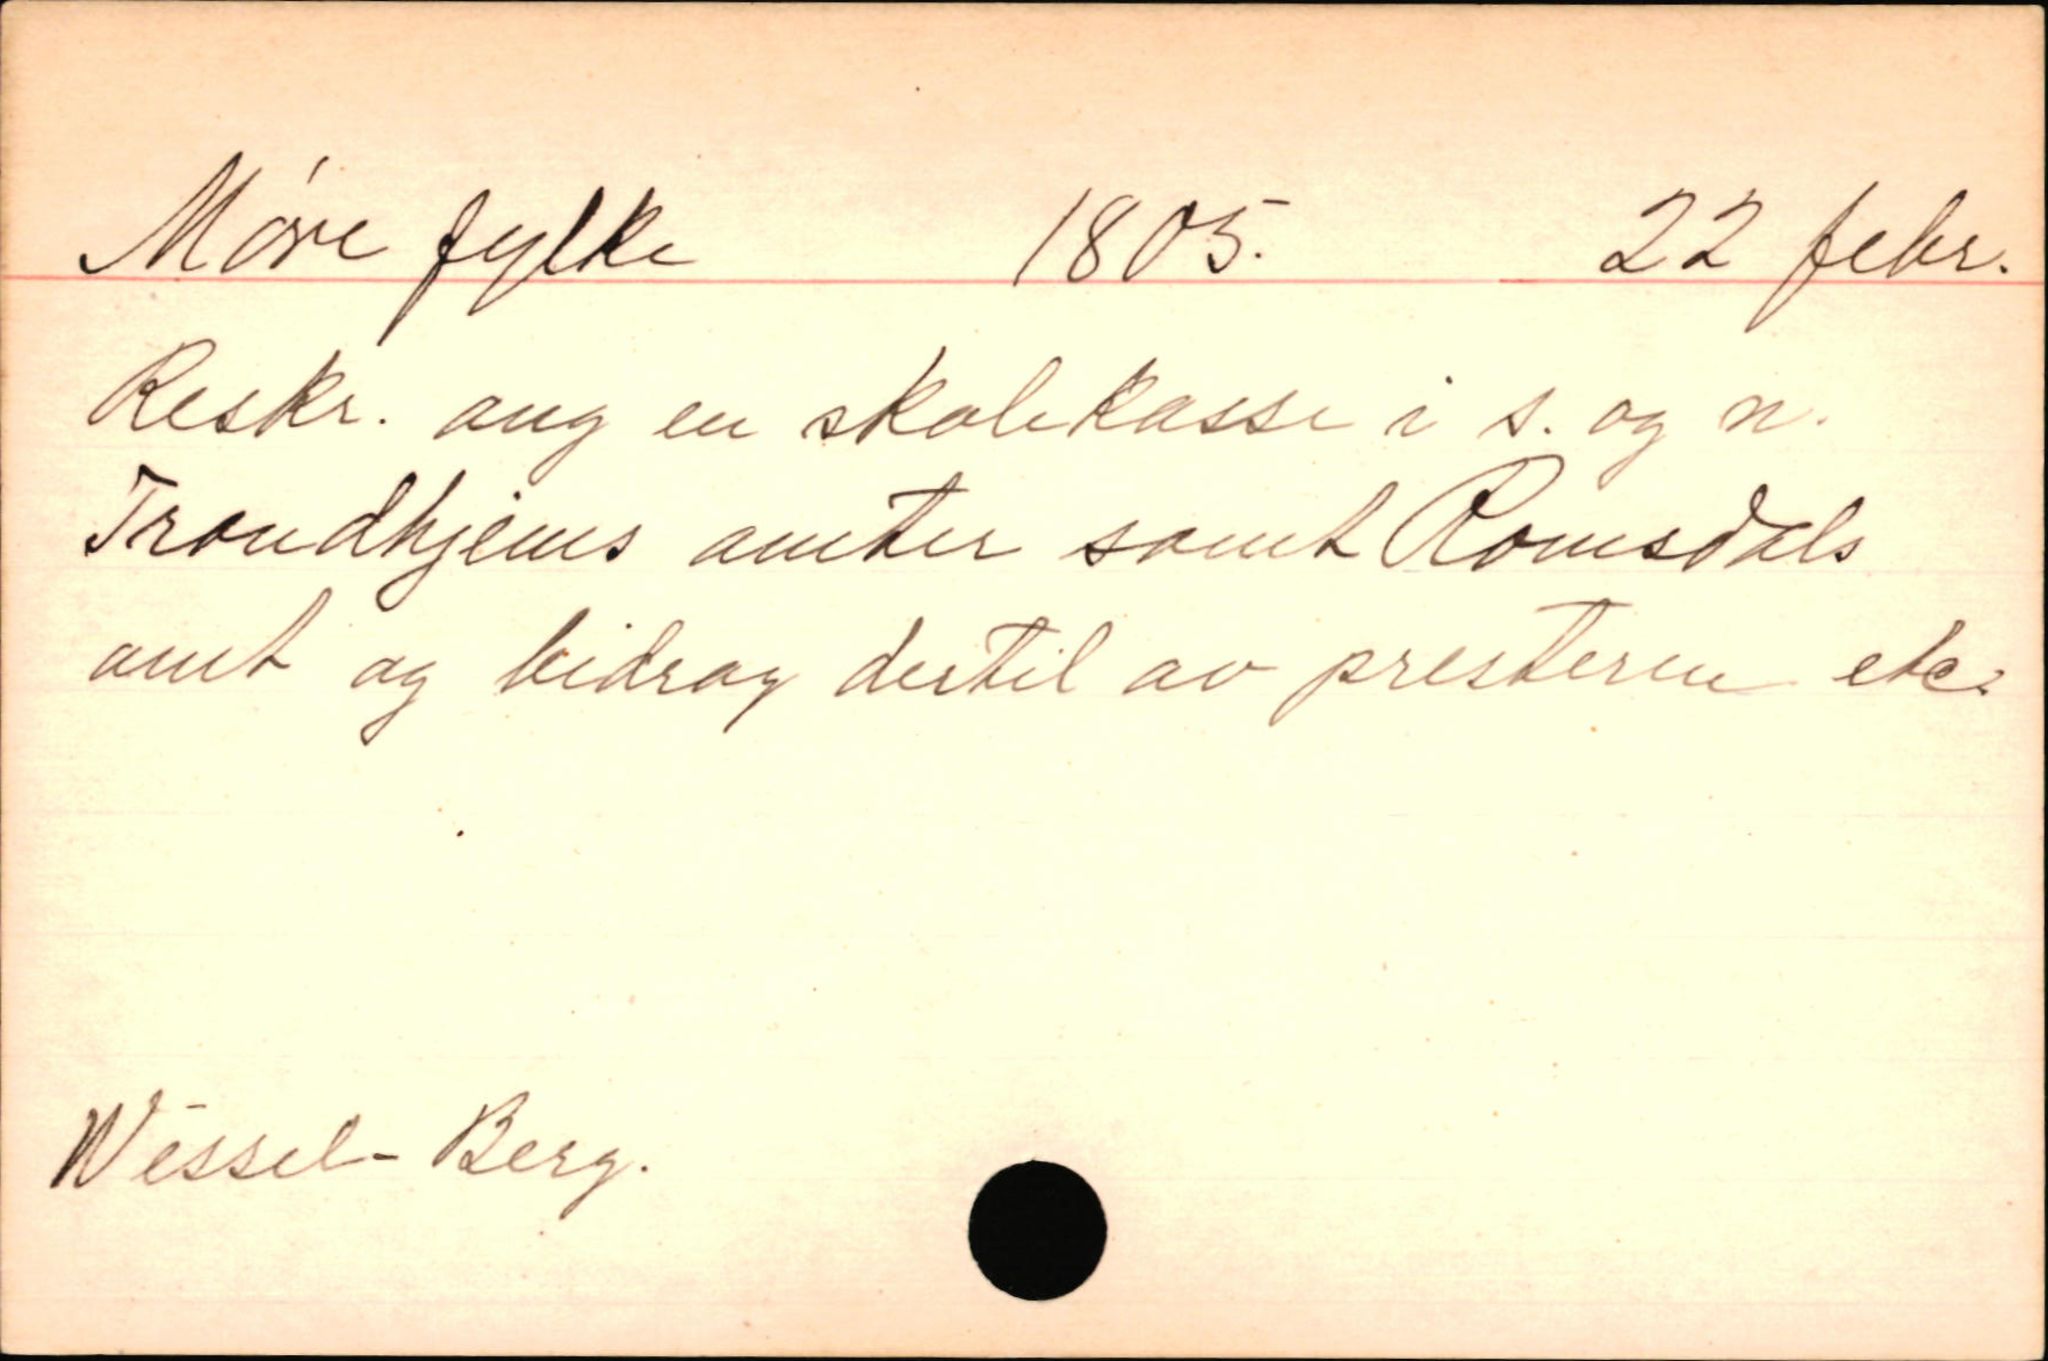 Møre fylke 1805. 22 febr.
Reskr. ang en skolekasse i s. og n.
Trondhjems amter samt Romsdals
amt og bidrag dertil av presterne etc.
Wessel-Berg.